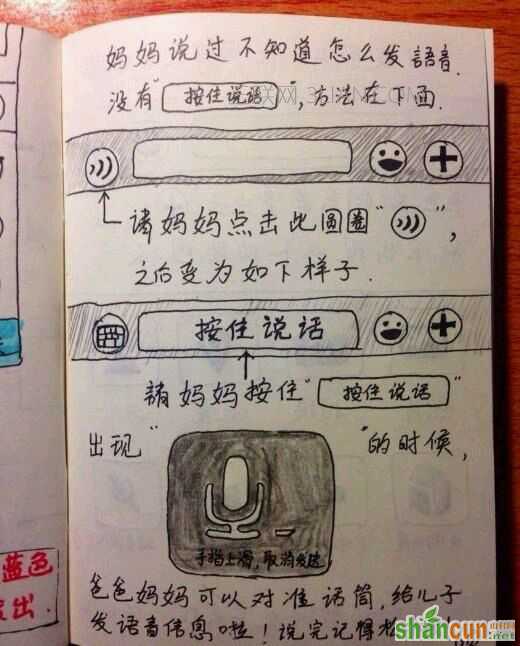 妈妈说过不知道怎么发語音.
没有"按住说话",方法在下面.
请妈妈点击此圆圈"",
之后变为如下样子.
按住说话
請妈妈按住"按住说话"
出现""的时候,
手指上滑,取消发送
爸爸妈妈可以对准话筒,给儿子
发语音信息啦!说完记得松
蓝色
出.
shancun
.net